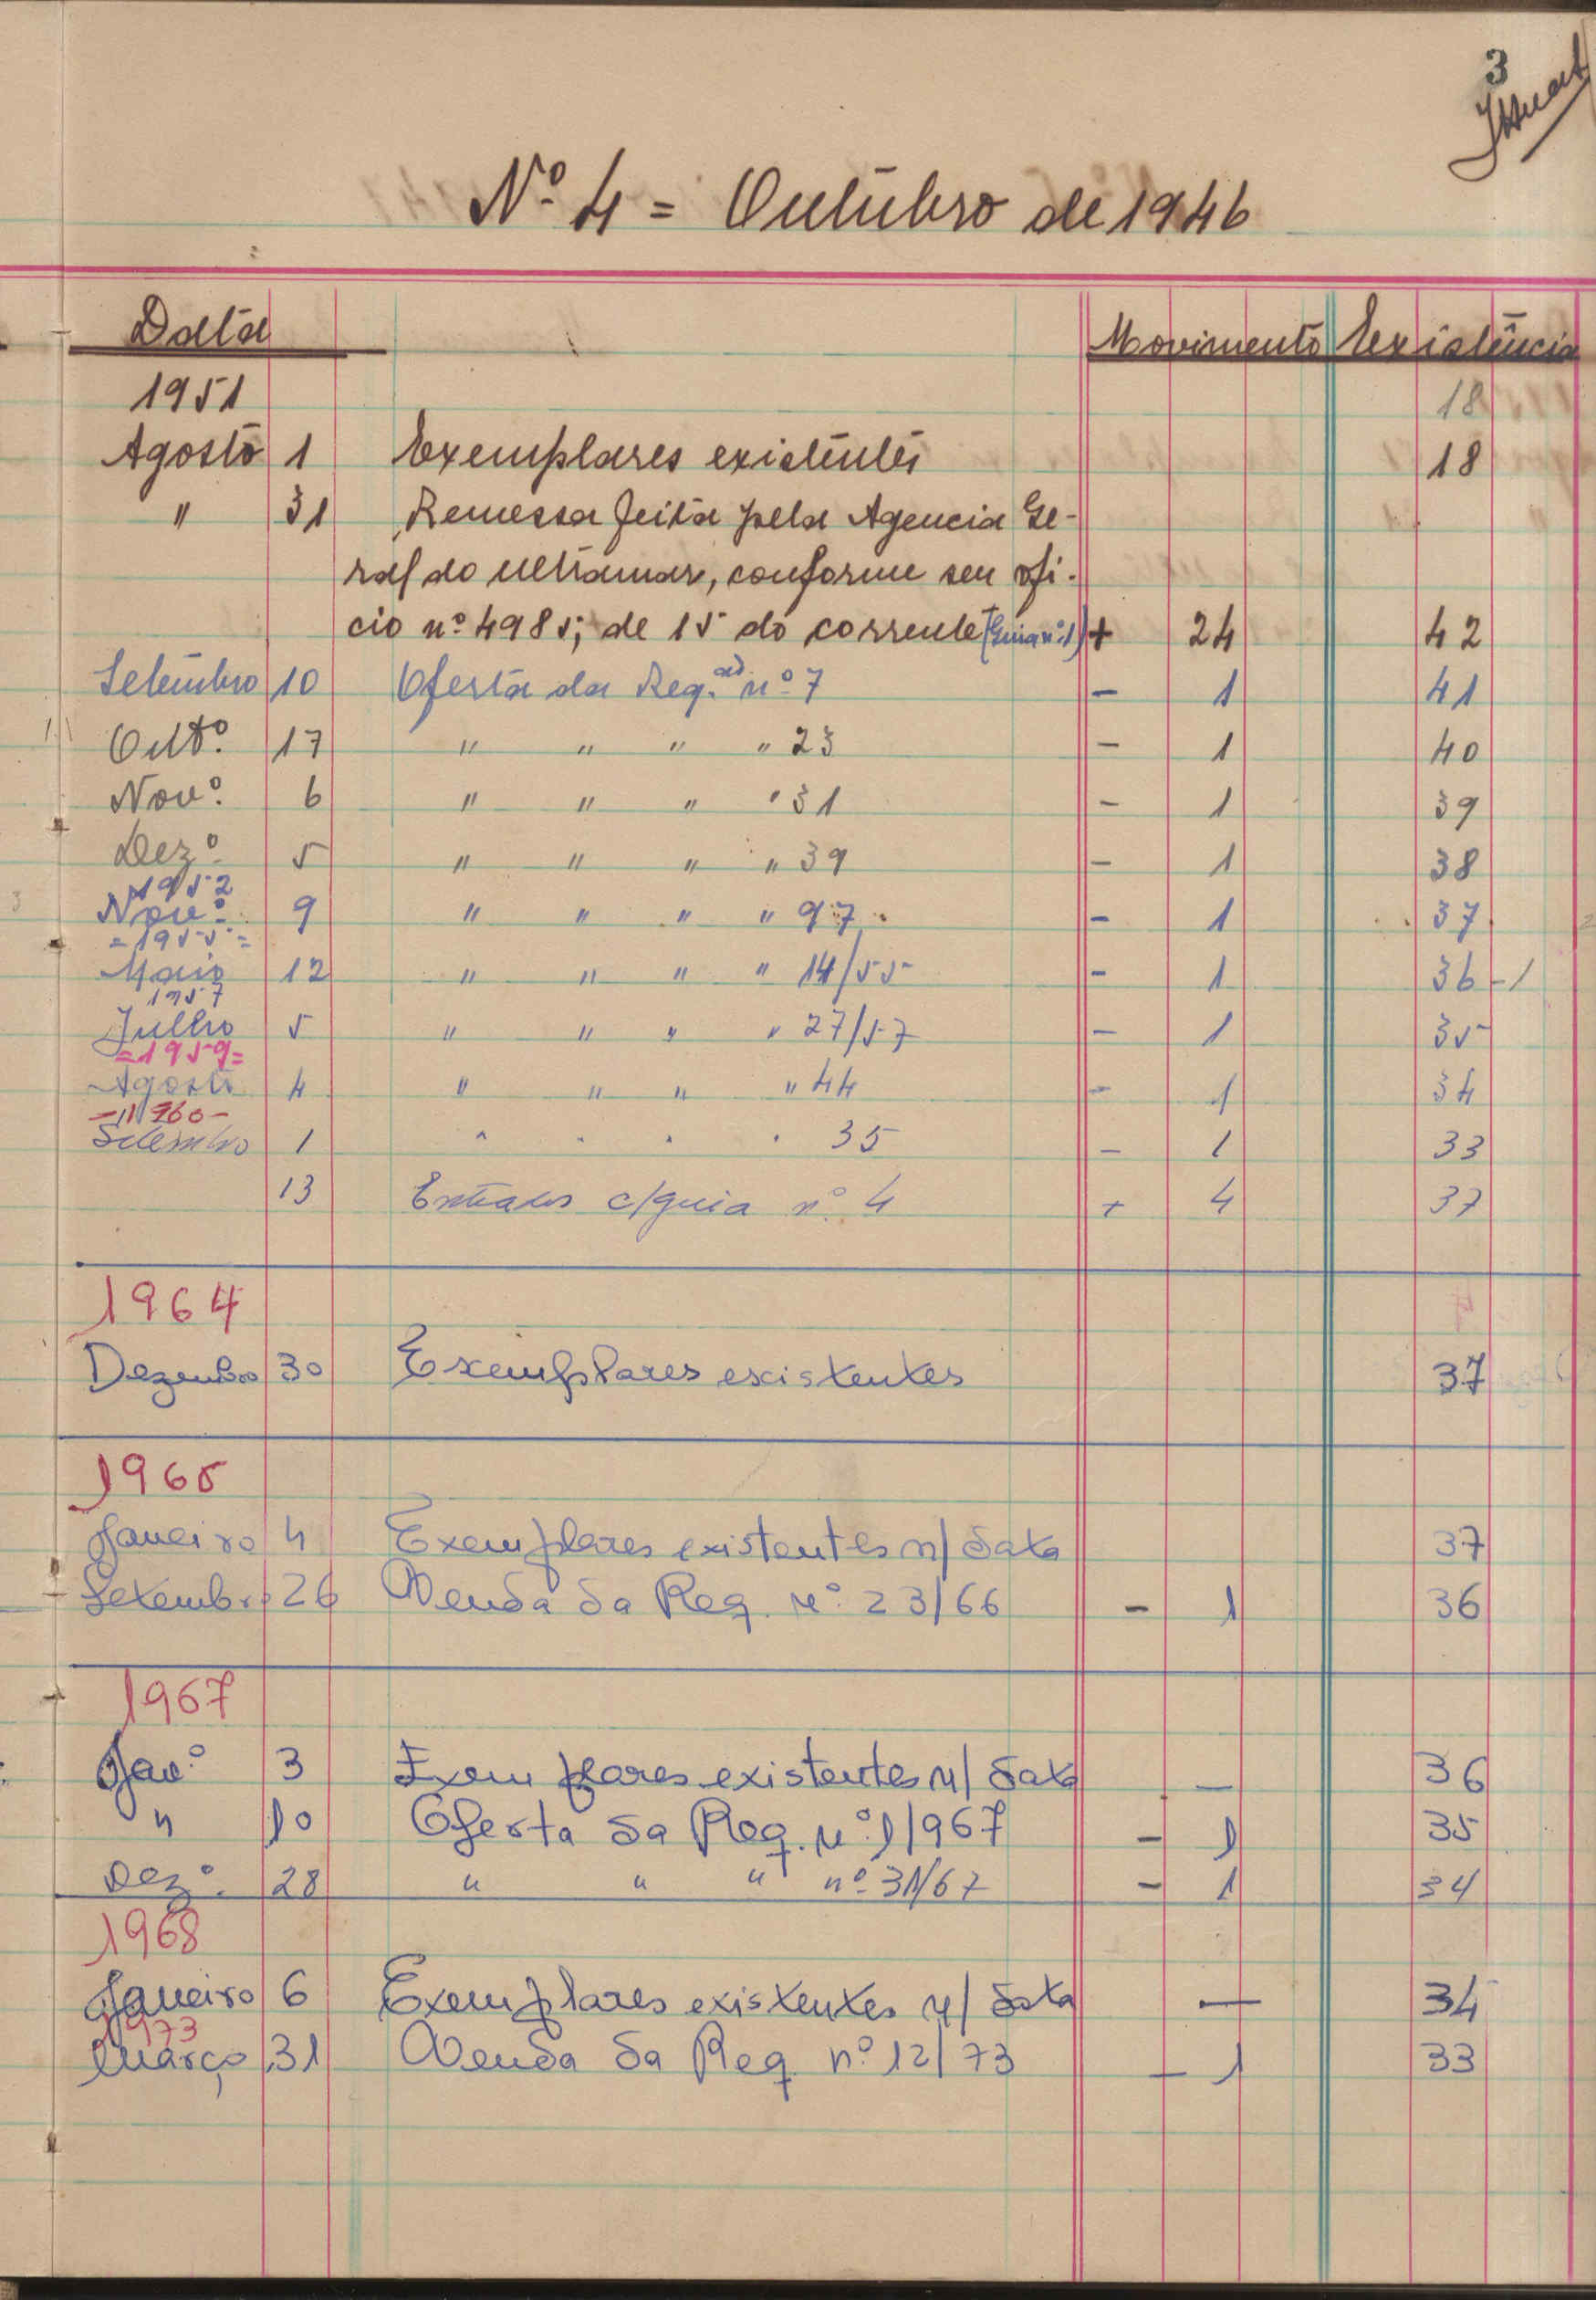 3
Nº 4 = Outubro de 1946
Data Movimento Existência
1951 18
Agosto 1 Exemplares existentes 18
" 31 Remessa feita pela Agencia Ge-
ral do Ultramar, conforme seu ofi-
cio nº 4985, de 15 do corrente (Guia nº 1) + 24 42
Setembro 10 Oferta da Req. nº 7 - 1 41
Outº. 17 " " " " 23 - 1 40
Novº. 6 " " " " 31 - 1 39
Dezº. 5 " " " " 39 - 1 38
1952
Novº. 9 " " " " 97 - 1 37
=1955=
Maio 12 " " " " 14/55 - 1 36 -1
1957
Julho 5 " " " " 27/57 - 1 35
=1959=
Agosto 4 " " " " 44 - 1 34
-1960-
Setembro 1 " " " " 35 - 1 33
13 Entrados c/guia nº 4 + 4 37
1964
Dezembro 30 Exemplares existentes 37
1965
Janeiro 4 Exemplares existentes n/ data 37
Setembro 26 Venda da Req. nº 23/66 - 1 36
1967
Janº. 3 Exemplares existentes n/ data — 36
" 10 Oferta da Req. nº 1/967 - 1 35
Dezº. 28 " " " nº 31/67 - 1 34
1968
Janeiro 6 Exemplares existentes n/ data — 34
1973
Março 31 Venda da Req. nº 12/73 - 1 33